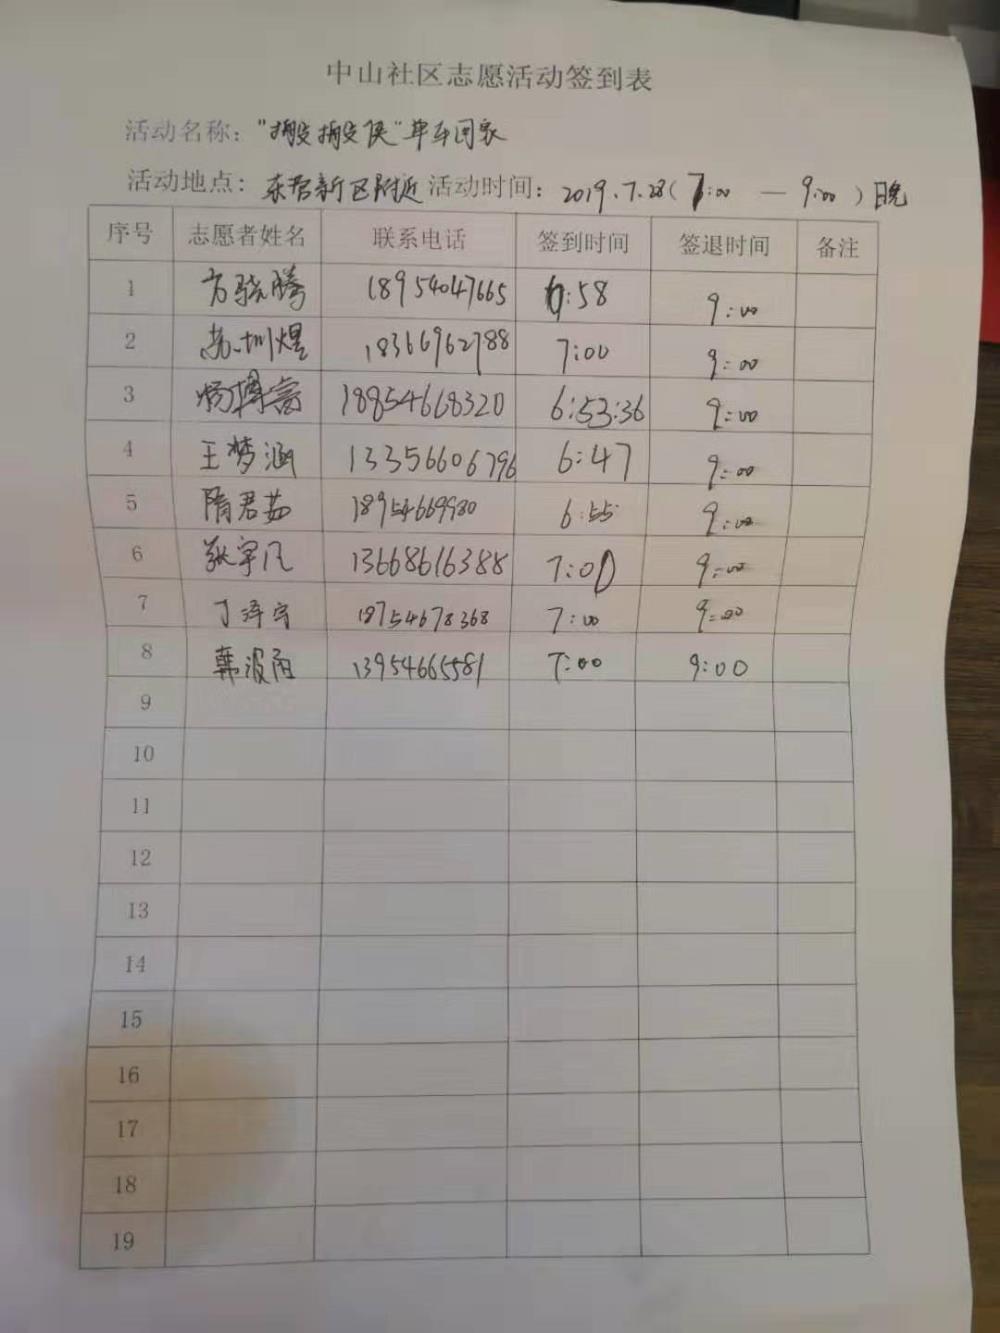 中山社区志愿活动签到表
活动名称："搬搬侠"单车回家
活动地点：东营新区附近 活动时间：2019.7.28(7:00 — 9:00)日晚
序号 志愿者姓名 联系电话 签到时间 签退时间 备注
1 方骁腾 18954047665 6:58 9:00
2 苏圳煜 18366962788 7:00 9:00
3 杨博富 18854668320 6:53:36 9:00
4 王梦涵 13356606796 6:47 9:00
5 隋君茹 18954669980 6:55 9:00
6 张宇凡 13668616388 7:00 9:00
7 丁泽宇 18754678368 7:00 9:00
8 韩波雨 13954665581 7:00 9:00
9
10
11
12
13
14
15
16
17
18
19